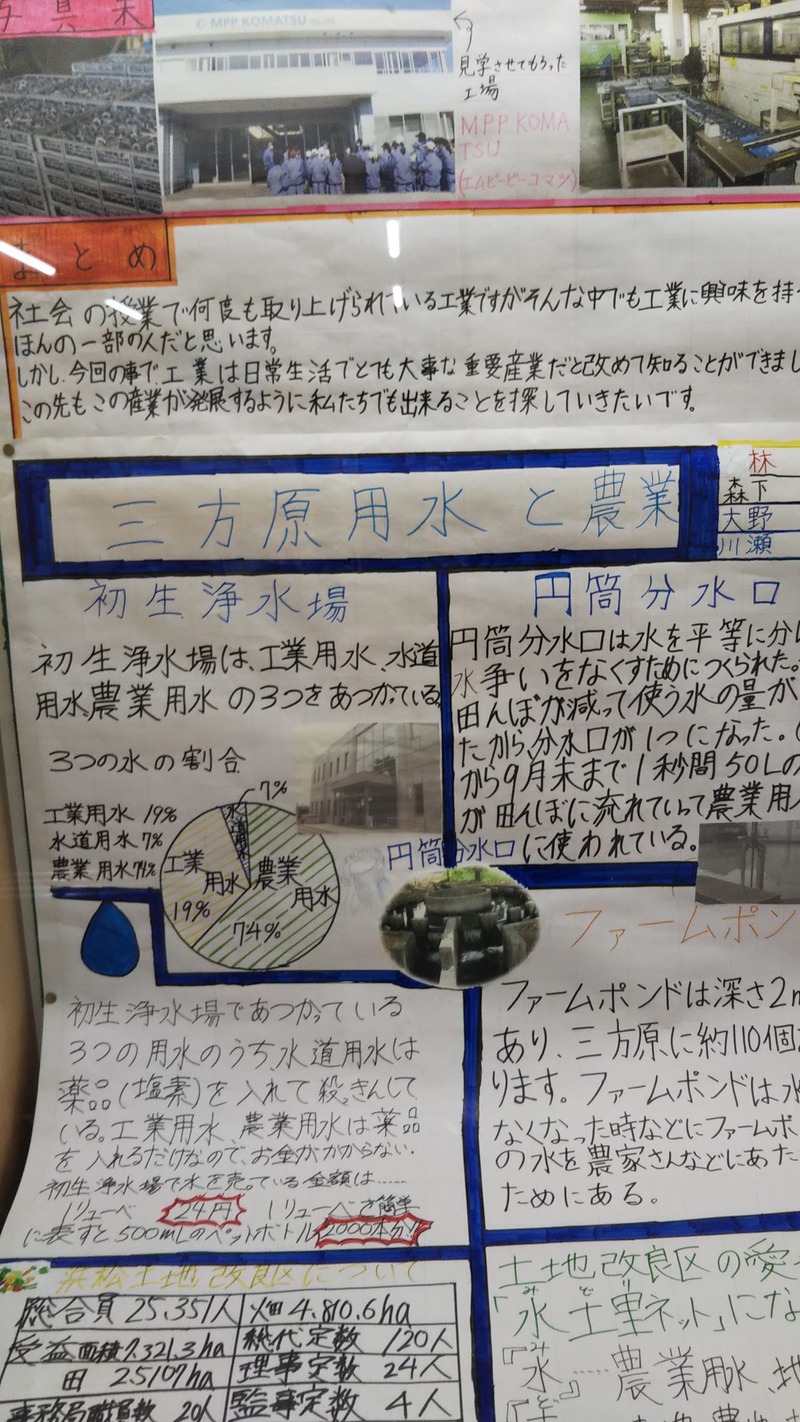 写真
© MPP KOMATSU
見学させてもらった
工場
MPP KOMA
TSU
(エムピーピーコマツ)
まとめ
社会の授業で何度も取り上げられている工業ですがそんな中でも工業に興味を持
ほんの一部の人だと思います。
しかし、今回の事で工業は日常生活でとても大事な重要産業だと改めて知ることができまし
この先もこの産業が発展するように私たちでも出来ることを探していきたいです。
三方原用水と農業
林
森下
大野
川瀬
初生浄水場
初生浄水場は、工業用水、水道
用水、農業用水の3つをあつかっている。
3つの水の割合
7%
工業用水 19%
水道用水 7%
農業用水 74%
水道用水
工業用水
19%
農業用水
74%
円筒分水口
円筒分水口は水を平等に分け
水争いをなくすためにつくられた。
田んぼが減って使う水の量が
たから、分水口が1つになった。(
から9月末まで1秒間50Lの
が田んぼに流れていって農業用
に使われている。
円筒分水口
初生浄水場であつかっている
3つの用水のうち水道用水は
薬品(塩素)を入れて殺きんして
いる。工業用水、農業用水は薬品
を入れるだけなので、お金がかからない。
初生浄水場で水を売っている金額は……
1リューベ 24円 1リューベを簡単
に表すと500mLのペットボトル2000本分!!
ファームポン
ファームポンドは深さ2m
あり、三方原に約110個
ります。ファームポンドは水
なくなった時などにファームポ
の水を農家さんなどにあた
ためにある。
浜松土地改良区について
総合員 25.351人 畑 4.810.6ha
受益面積 7.321.3ha 総代定数 120人
田 2510.7ha 理事定数 24人
事務局職員数 20人 監事定数 4人
土地改良区の愛
「水土里ネット」にな
みどり
『水』……農業用水、地
み
『土』
ど